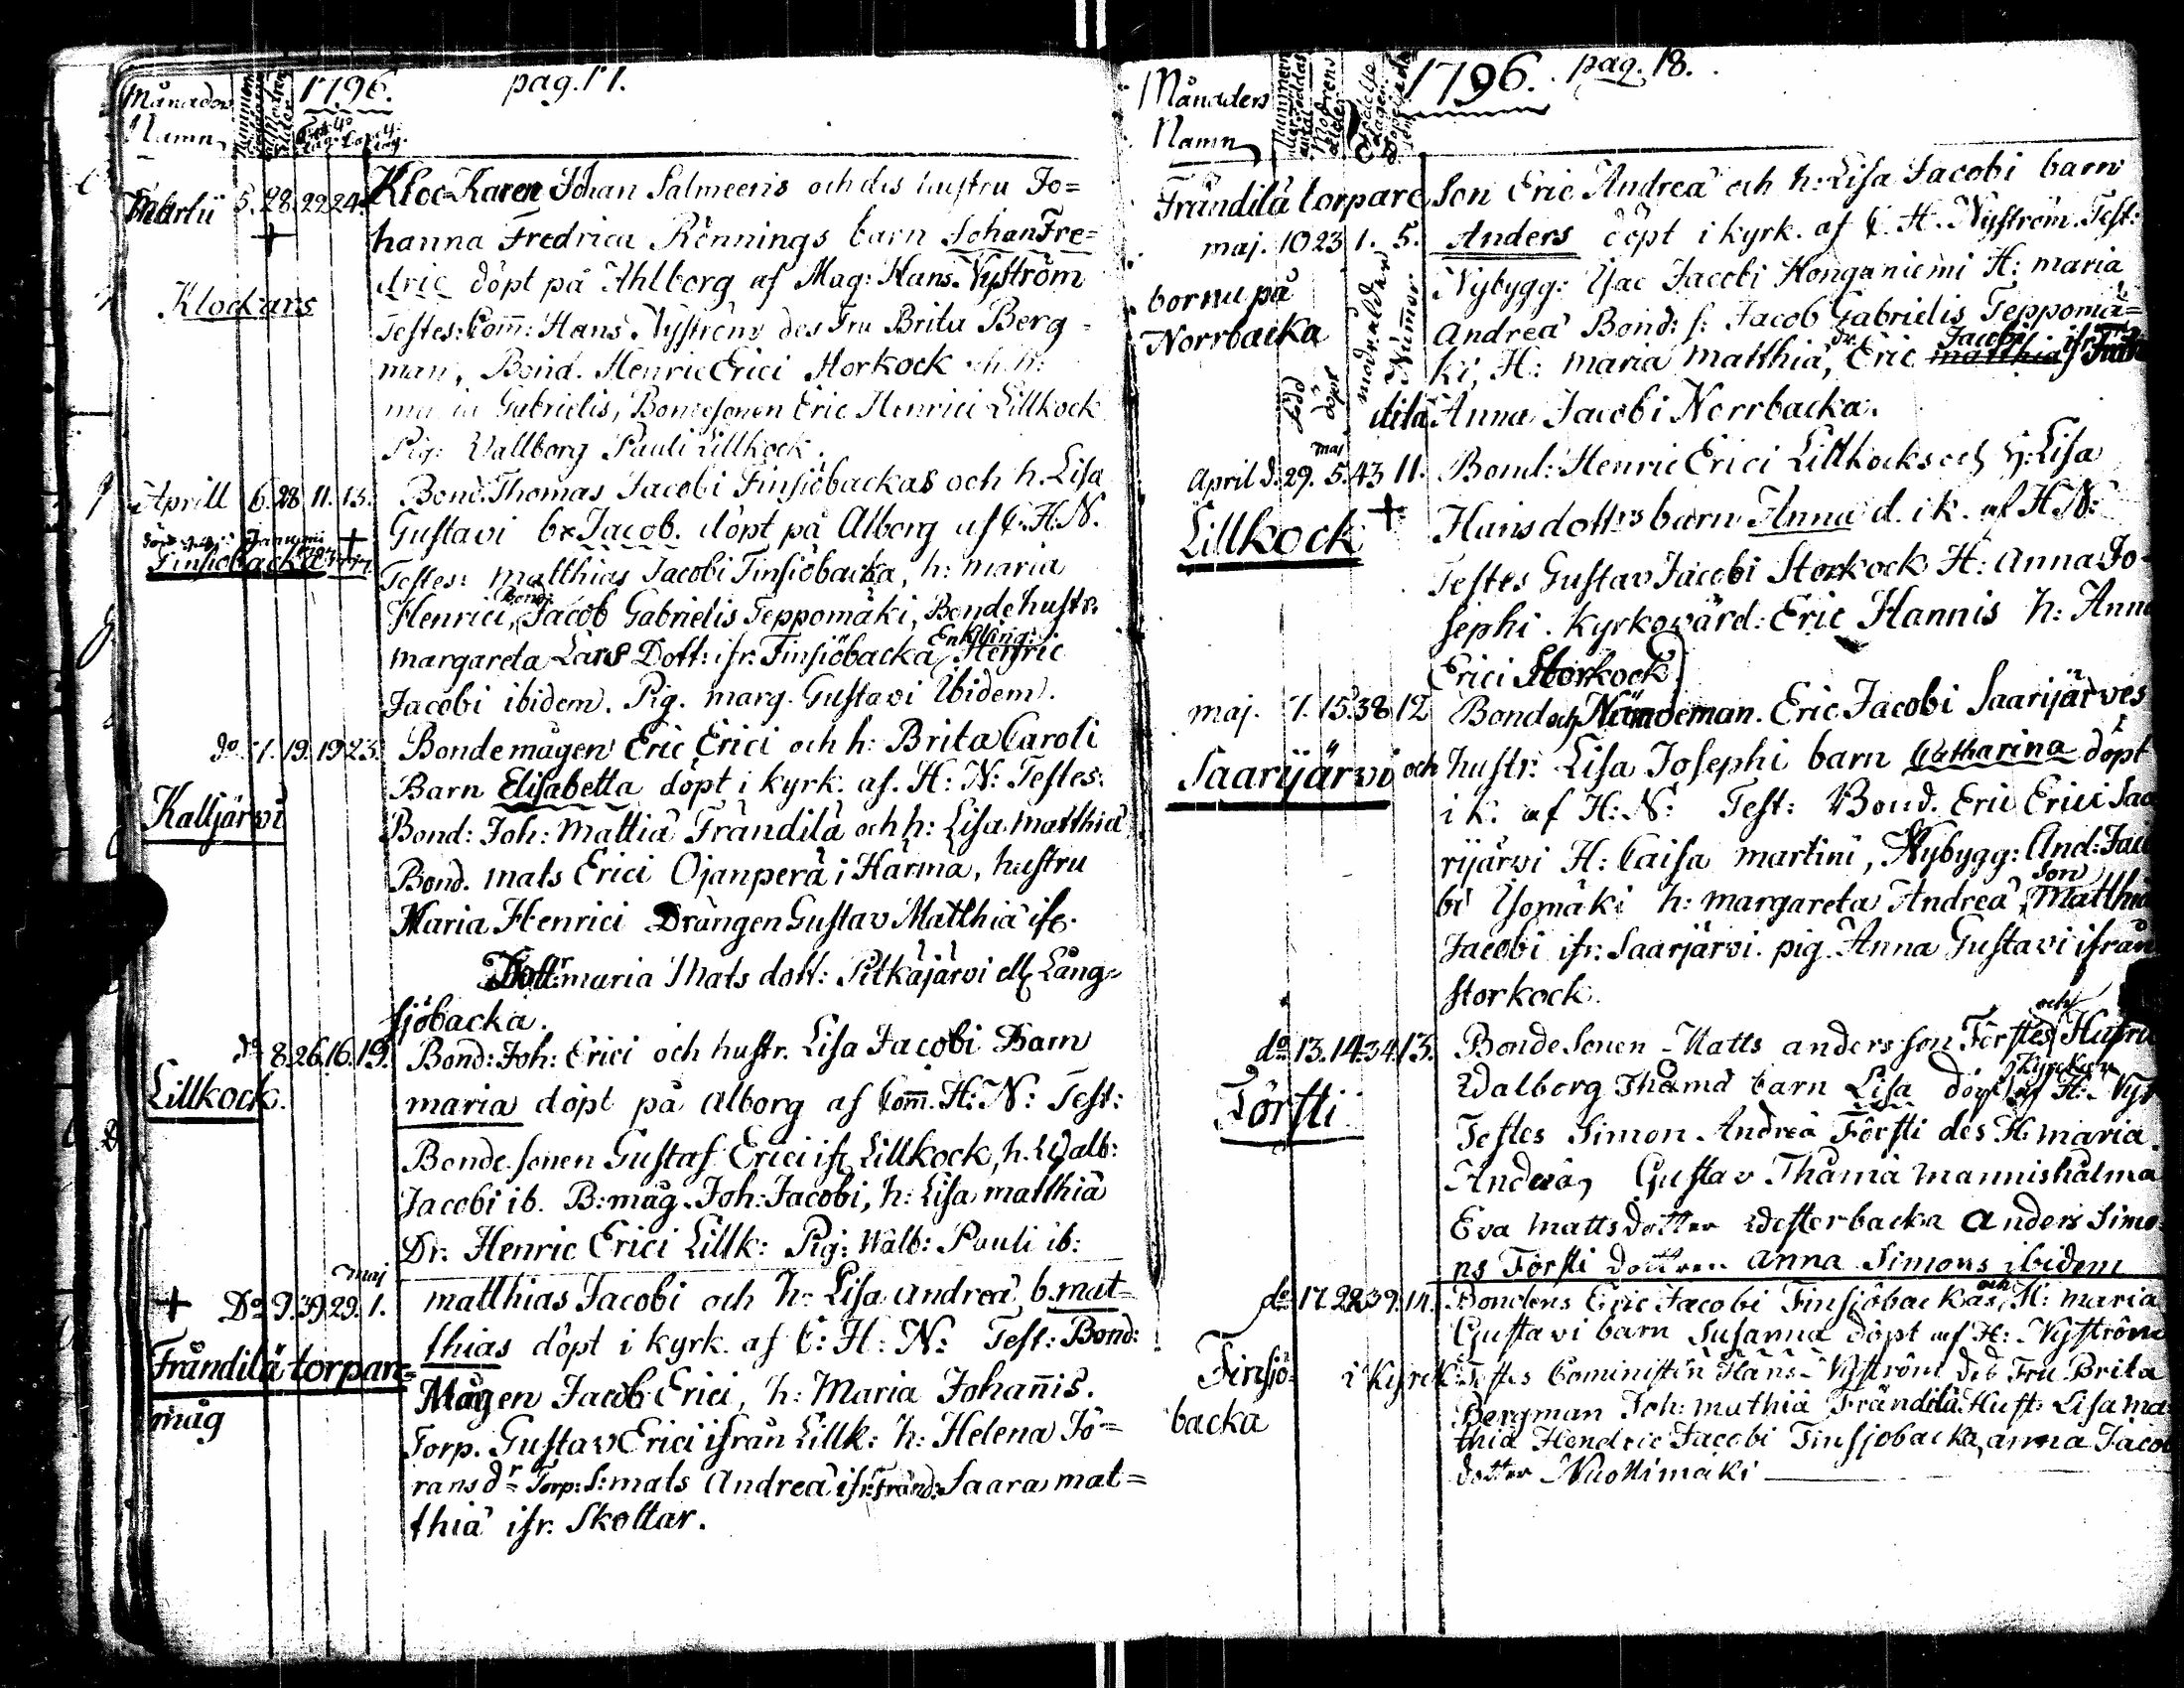 1796. pag. 17.
Månaders
Namn
Martii 5. 28. 22 24. Kloc-Karen Johan Salmeens och des hustru Jo=
hanna Fredrica Rönnings barn Johan Fre=
dric döpt på Ahlborg af Mag: Hans Nyström
Klockars
Testes: Com̄: Hans Nyström des Fru Brita Berg=
man, Bond. Henric Erici Storkock och h:
maria Gabrielis, Bondesonen Eric Henrici Lillkock
Pig: Wallborg Pauli Lillkock.
Aprill 6. 28. 11. 13. Bond. Thomas Jacobi Finsiöbackas och h. Lisa
Gustavi br Jacob. döpt på Alborg af C. H. N.
Finsiöbacka
Testes: Matthias Jacobi Finsiöbacka, h: maria
Henrici, Bond: Jacob Gabrielis Teppomäki, Bonde hustr.
margareta Lars Dott: ifr. Finsiöbacka, Enkling: Henric
Jacobi ibidem. Pig. marg. Gustavi ibidem.
do. 7. 19. 19 23. Bondemågen Eric Erici och h: Brita Caroli
Barn Elisabetta döpt i kyrk. af. H: N: Testes:
Kalljärwi
Bond: Joh: Mattiä Frändilä och h: Lisa Matthiä
Bond. Mats Erici Ojanperä i Härmä, hustru
Maria Henrici Drängen Gustav Matthiä ifr.
Dottr maria Mats dott: Pitkäjärvi ell Lång=
sjöbacka.
do 8. 26. 16. 19. Bond: Joh: Erici och hustr. Lisa Jacobi Barn
Lillkock.
maria döpt på Alborg af Com̄. H: N: Test:
Bonde sonen Gustaf Erici ifr Lillkock, h. Walb:
Jacobi ib. B: måg. Joh: Jacobi, h: Lisa matthiä
Dr: Henric Erici Lillk: Pig: Walb: Pauli ib:
maj
Do 9. 39. 29. 1. matthias Jacobi och h: Lisa Andreä b. mat=
thias döpt i kyrk. af C: H: N: Test: Bond:
Frändilä torpare=
måg
Mågen Jacob Erici, h: Maria Johan̄is.
Torp. Gustav Erici ifrån Lillk: h: Helena Jö=
rans dr Torp: S: mats Andreä ifr: Fränd: Saara mat=
thiä ifr. Skoltar.
1796. pag. 18.
Månaders
Namn
Frändilä torpare Son Eric Andreä och h: Lisa Jacobi barn
maj. 10 23 1. 5. Anders döpt i kyrk. af C. H. Nyström. Test:
bor nu på
Norrbacka
född döpt modr. ålder Numer
Nybygg: Isac Jacobi Honganiemi H: maria
Andreä Bond: s: Jacob Gabrielis Teppomä=
ki, H: maria matthiä, Dr. Eric Jacobi ifr. Frän
dilä Anna Jacobi Norrbacka.
maj
April d. 29. 5. 43 11. Bond: Henric Erici Lillkocks och h: Lisa
Lillkock
Hansdotters barn Anna d. i k. af H. N:
Testes Gustav Jacobi Storkock H: Anna Jo-
sephi. Kyrkowärd: Eric Hannis h: Anna
Erici Storkock
maj. 7. 15. 38 12 Bond och Nämdeman. Eric Jacobi Saarijärves
Saarijärwi
och hustr: Lisa Josephi barn Catharina döpt
i k: af H: N: Test: Bond. Eric Erici Saa
rijärwi H: Caisa martini, Nybygg: And: Jaco
bi Isomäki h: margareta Andreä, Son Matthia
Jacobi ifr: Saarjärvi. pig. Anna Gustavi ifrån
Storkock.
do. 13. 14. 34. 13. Bonde Sonen Matts andersson Förstes och Hustru
Försti
Walborg Thomä barn Lisa döpt i Kyrckan af H: Nys
Testes Simon Andreä Försti des H: maria
Andreä, Gustav Thåmä Mannishålma
Eva matts dotter Westerbacka Anders Simo
ns Försti dottren Anna Simons ibidem
do 17. 22. 39. 14. Bondens Eric Jacobi Finsjöbackas, och H: Maria
Gustavi barn Susanna döpt af H: Nyström
Finsjö-
backa
i Kyrck: Testes Cominist:n Hans Nyström Des Fru Brita
Bergman Joh: mathiä Frändilä Hust: Lisa Ma
thiä Hendric Jacobi Finsjöbacka, anna Jacob
dotter Nuottimäki